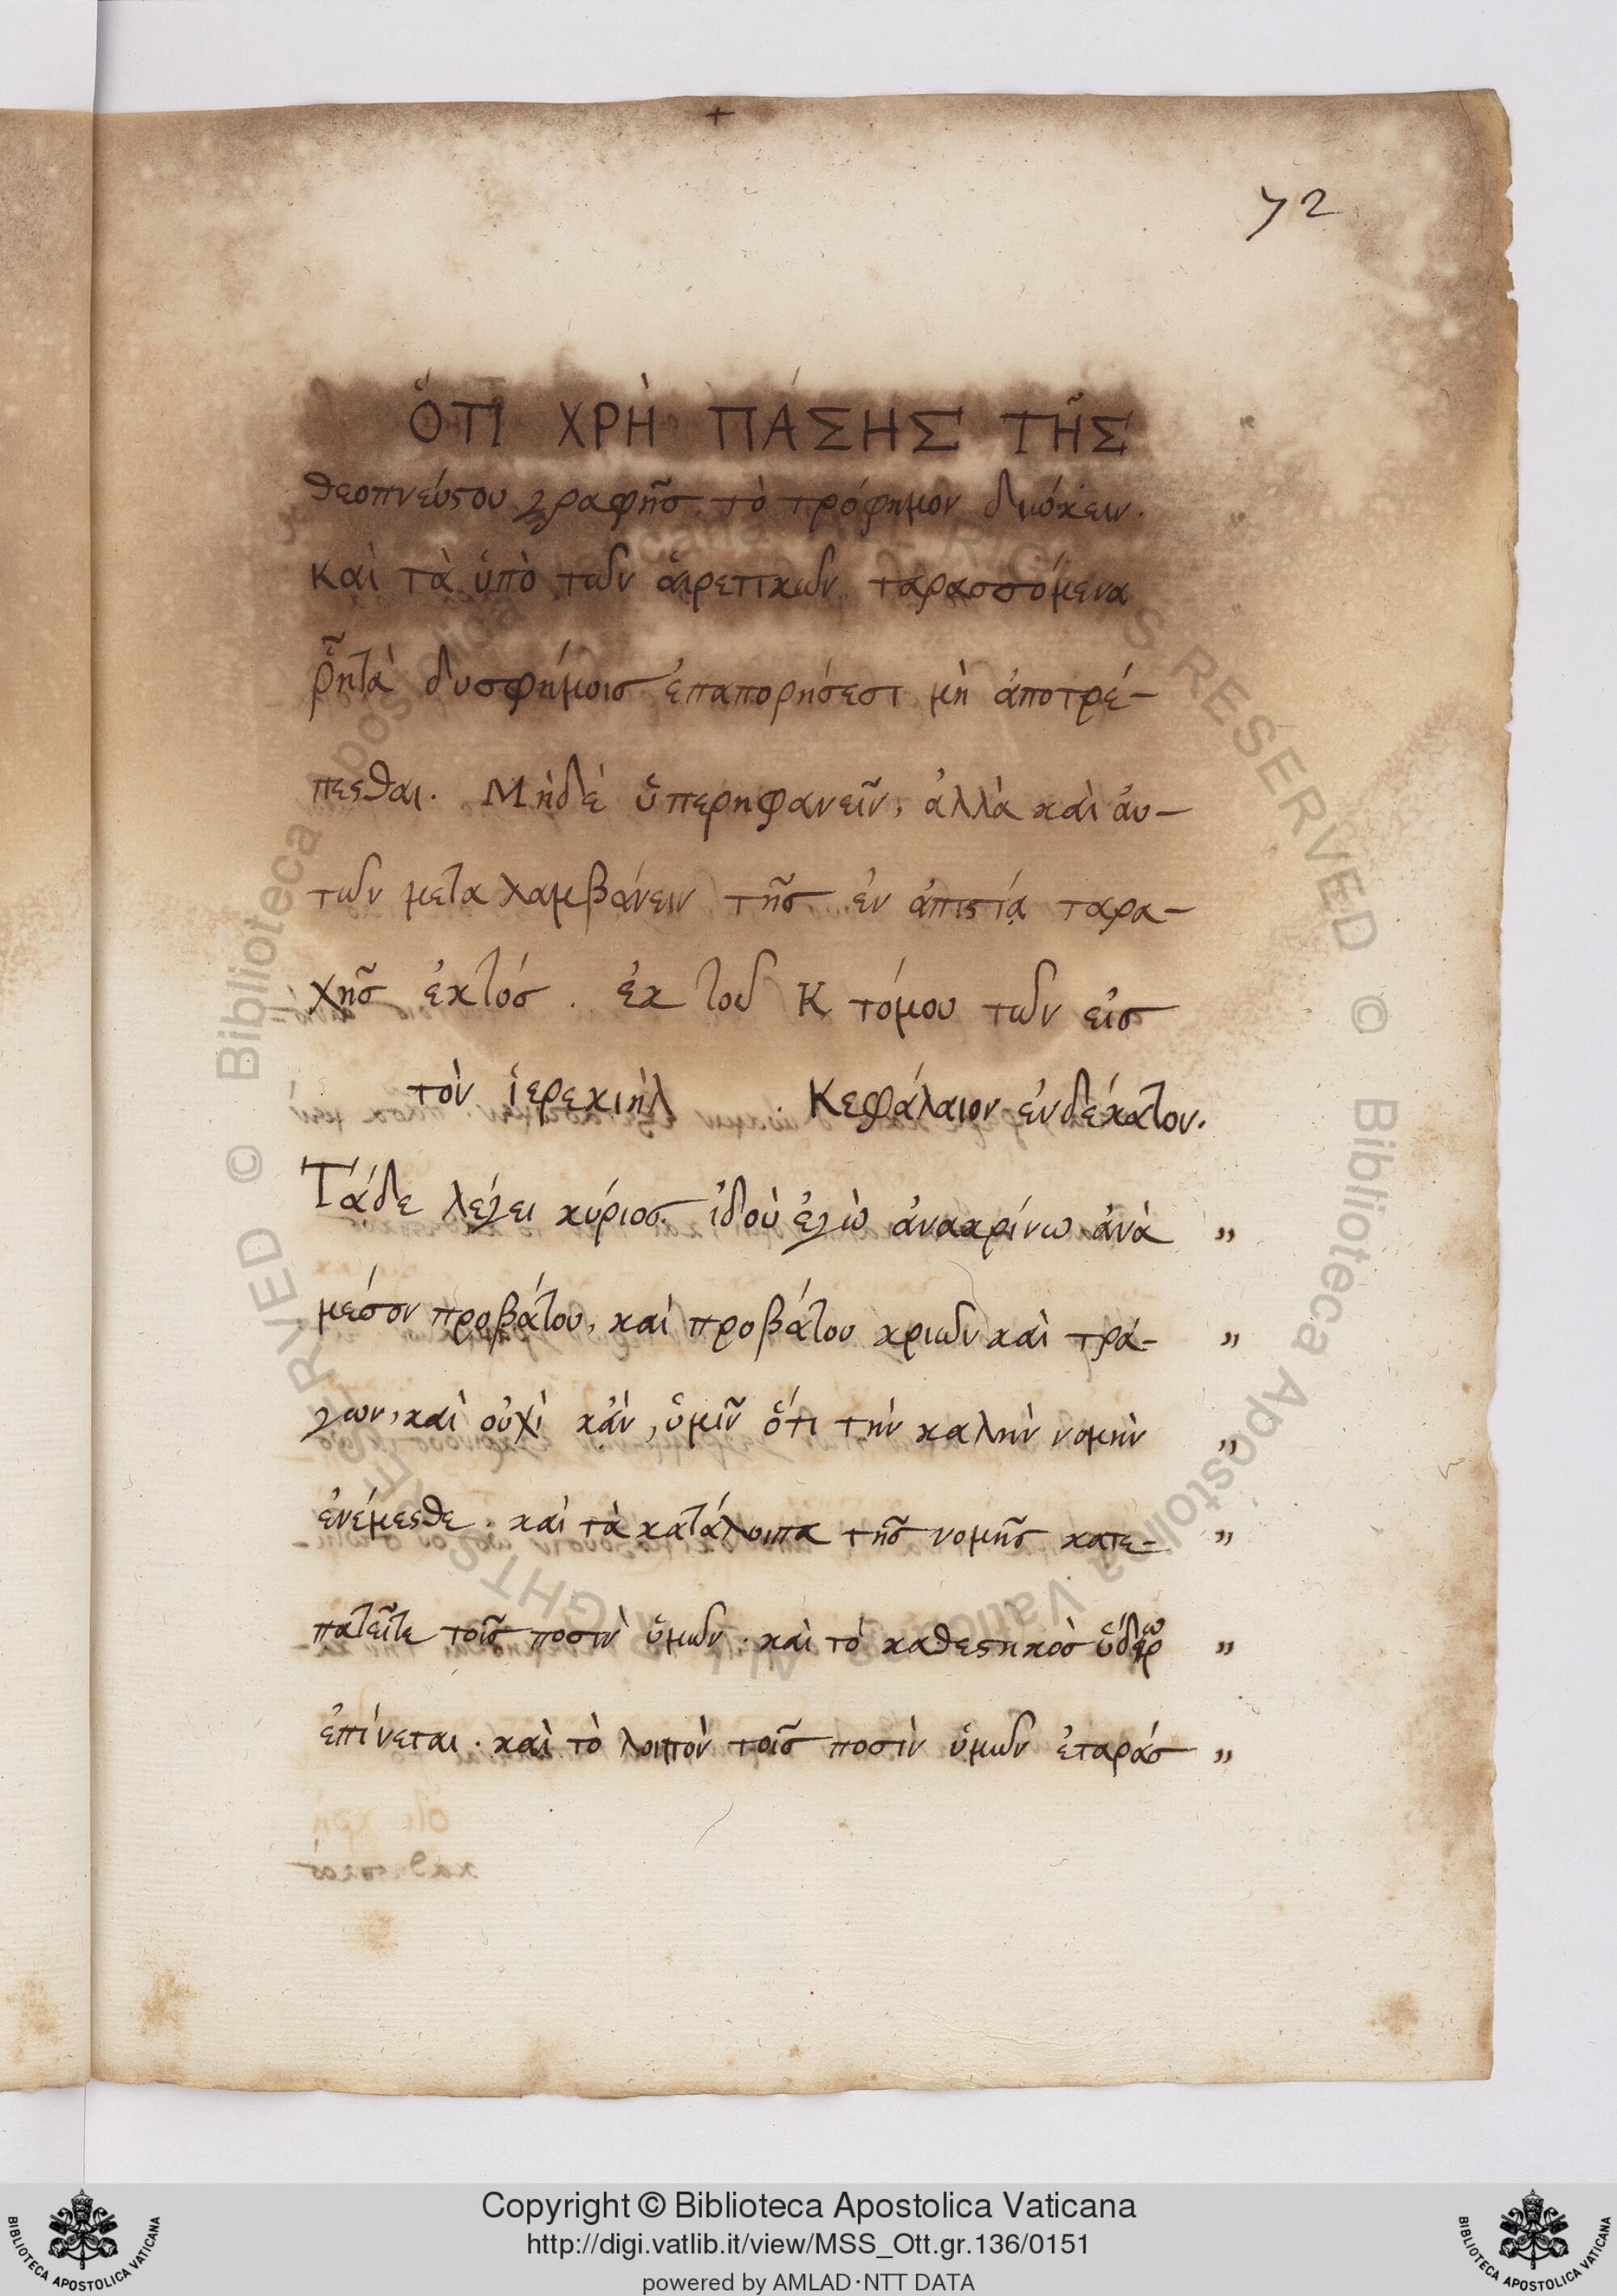 +
72
ὍΤΙ ΧΡῊ ΠΆΣΗΣ ΤΗ͂Σ
θεοπνεύστου γραφῆς τὸ τρόφημον διώκειν.
καὶ τὰ ὑπὸ τῶν ἁιρετικῶν ταρασσόμενα
ῥητὰ δυσφήμοις ἐπαπορήσεσι μὴ ἀποτρέ-
πεσθαι. Μηδὲ ὑπερηφανεῖν, ἀλλὰ καὶ ἀυ-
τῶν μεταλαμβάνειν τῆς ἐν ἀπιστίᾳ ταρα-
χῆς ἐκτός. ἐκ τοῦ Κ τόμου τῶν εἰς
τὸν ἱερεκιὴλ . Κεφάλαιον ἑνδέκατον.
Τάδε λέγει κύριος. ἰδοὺ ἐγὼ ἀνακρίνω ἀνὰ „
μέσον προβάτου, καὶ προβάτου κριῶν καὶ τρά- „
γων, καὶ οὐχὶ κἀν, ὑμῖν ὅτι τὴν καλὴν νομὴν „
ἐνέμεσθε. καὶ τὰ κατάλοιπα τῆς νομῆς κατε- „
πατεῖτε τοῖς ποσὶν ὑμῶν. καὶ τὸ καθεστηκὸς ὕδωρ „
ἐπίνεται. καὶ τὸ λοιπὸν τοῖς ποσὶν ὑμῶν ἐταράσ „
© Biblioteca Apostolica Vaticana ALL RIGHTS RESERVED © Biblioteca Apostolica Vaticana ALL RIGHTS RESERVED
Copyright © Biblioteca Apostolica Vaticana
http://digi.vatlib.it/view/MSS_Ott.gr.136/0151
powered by AMLAD·NTT DATA
BIBLIOTECA APOSTOLICA VATICANA
BIBLIOTECA APOSTOLICA VATICANA